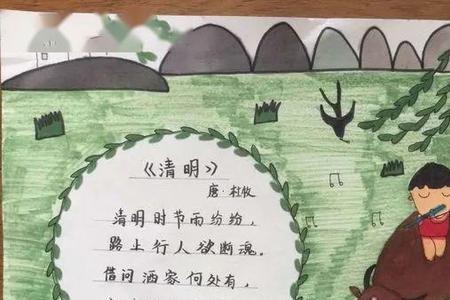 《清明》
唐·杜牧
清明时节雨纷纷，
路上行人欲断魂。
借问酒家何处有，